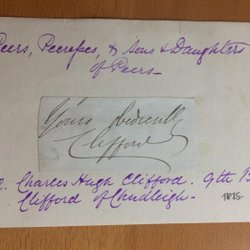 Peers, Peeresses, & Sons & Daughters
of Peers—
Yours obediently
Clifford
Charles Hugh Clifford. 9th
Clifford of Chudleigh.